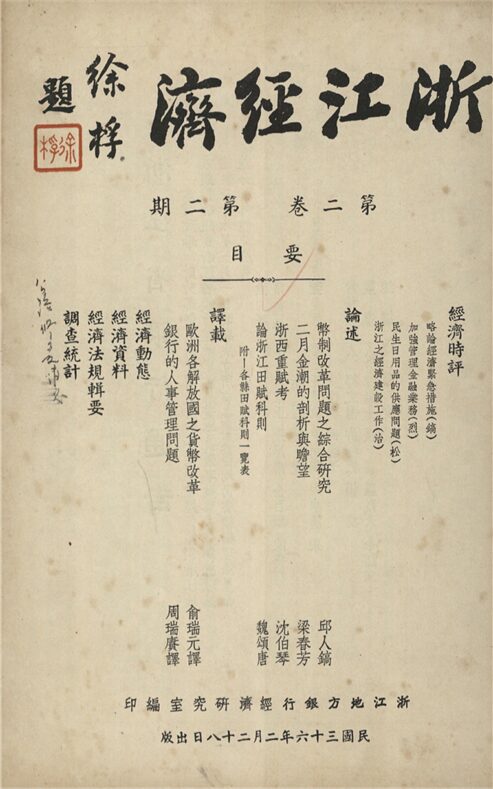 浙江經濟
徐桴
題
徐桴
第二卷 第二期
要目
經濟時評
略論經濟緊急措施(鎬)
加強管理金融業務(烈)
民生日用品的供應問題(松)
浙江之經濟建設工作(治)
論述
幣制改革問題之綜合研究 邱人鎬
二月金潮的剖析與瞻望 梁春芳
浙西重賦考 沈伯琴
論浙江田賦科則 魏頌唐
附-各縣田賦科則一覽表
譯載
歐洲各解放國之貨幣改革 俞瑞元譯
銀行的人事管理問題 周瑞賡譯
經濟動態
經濟資料
經濟法規輯要
調查統計
浙江地方銀行經濟研究室編印
民國三十六年二月二十八日出版